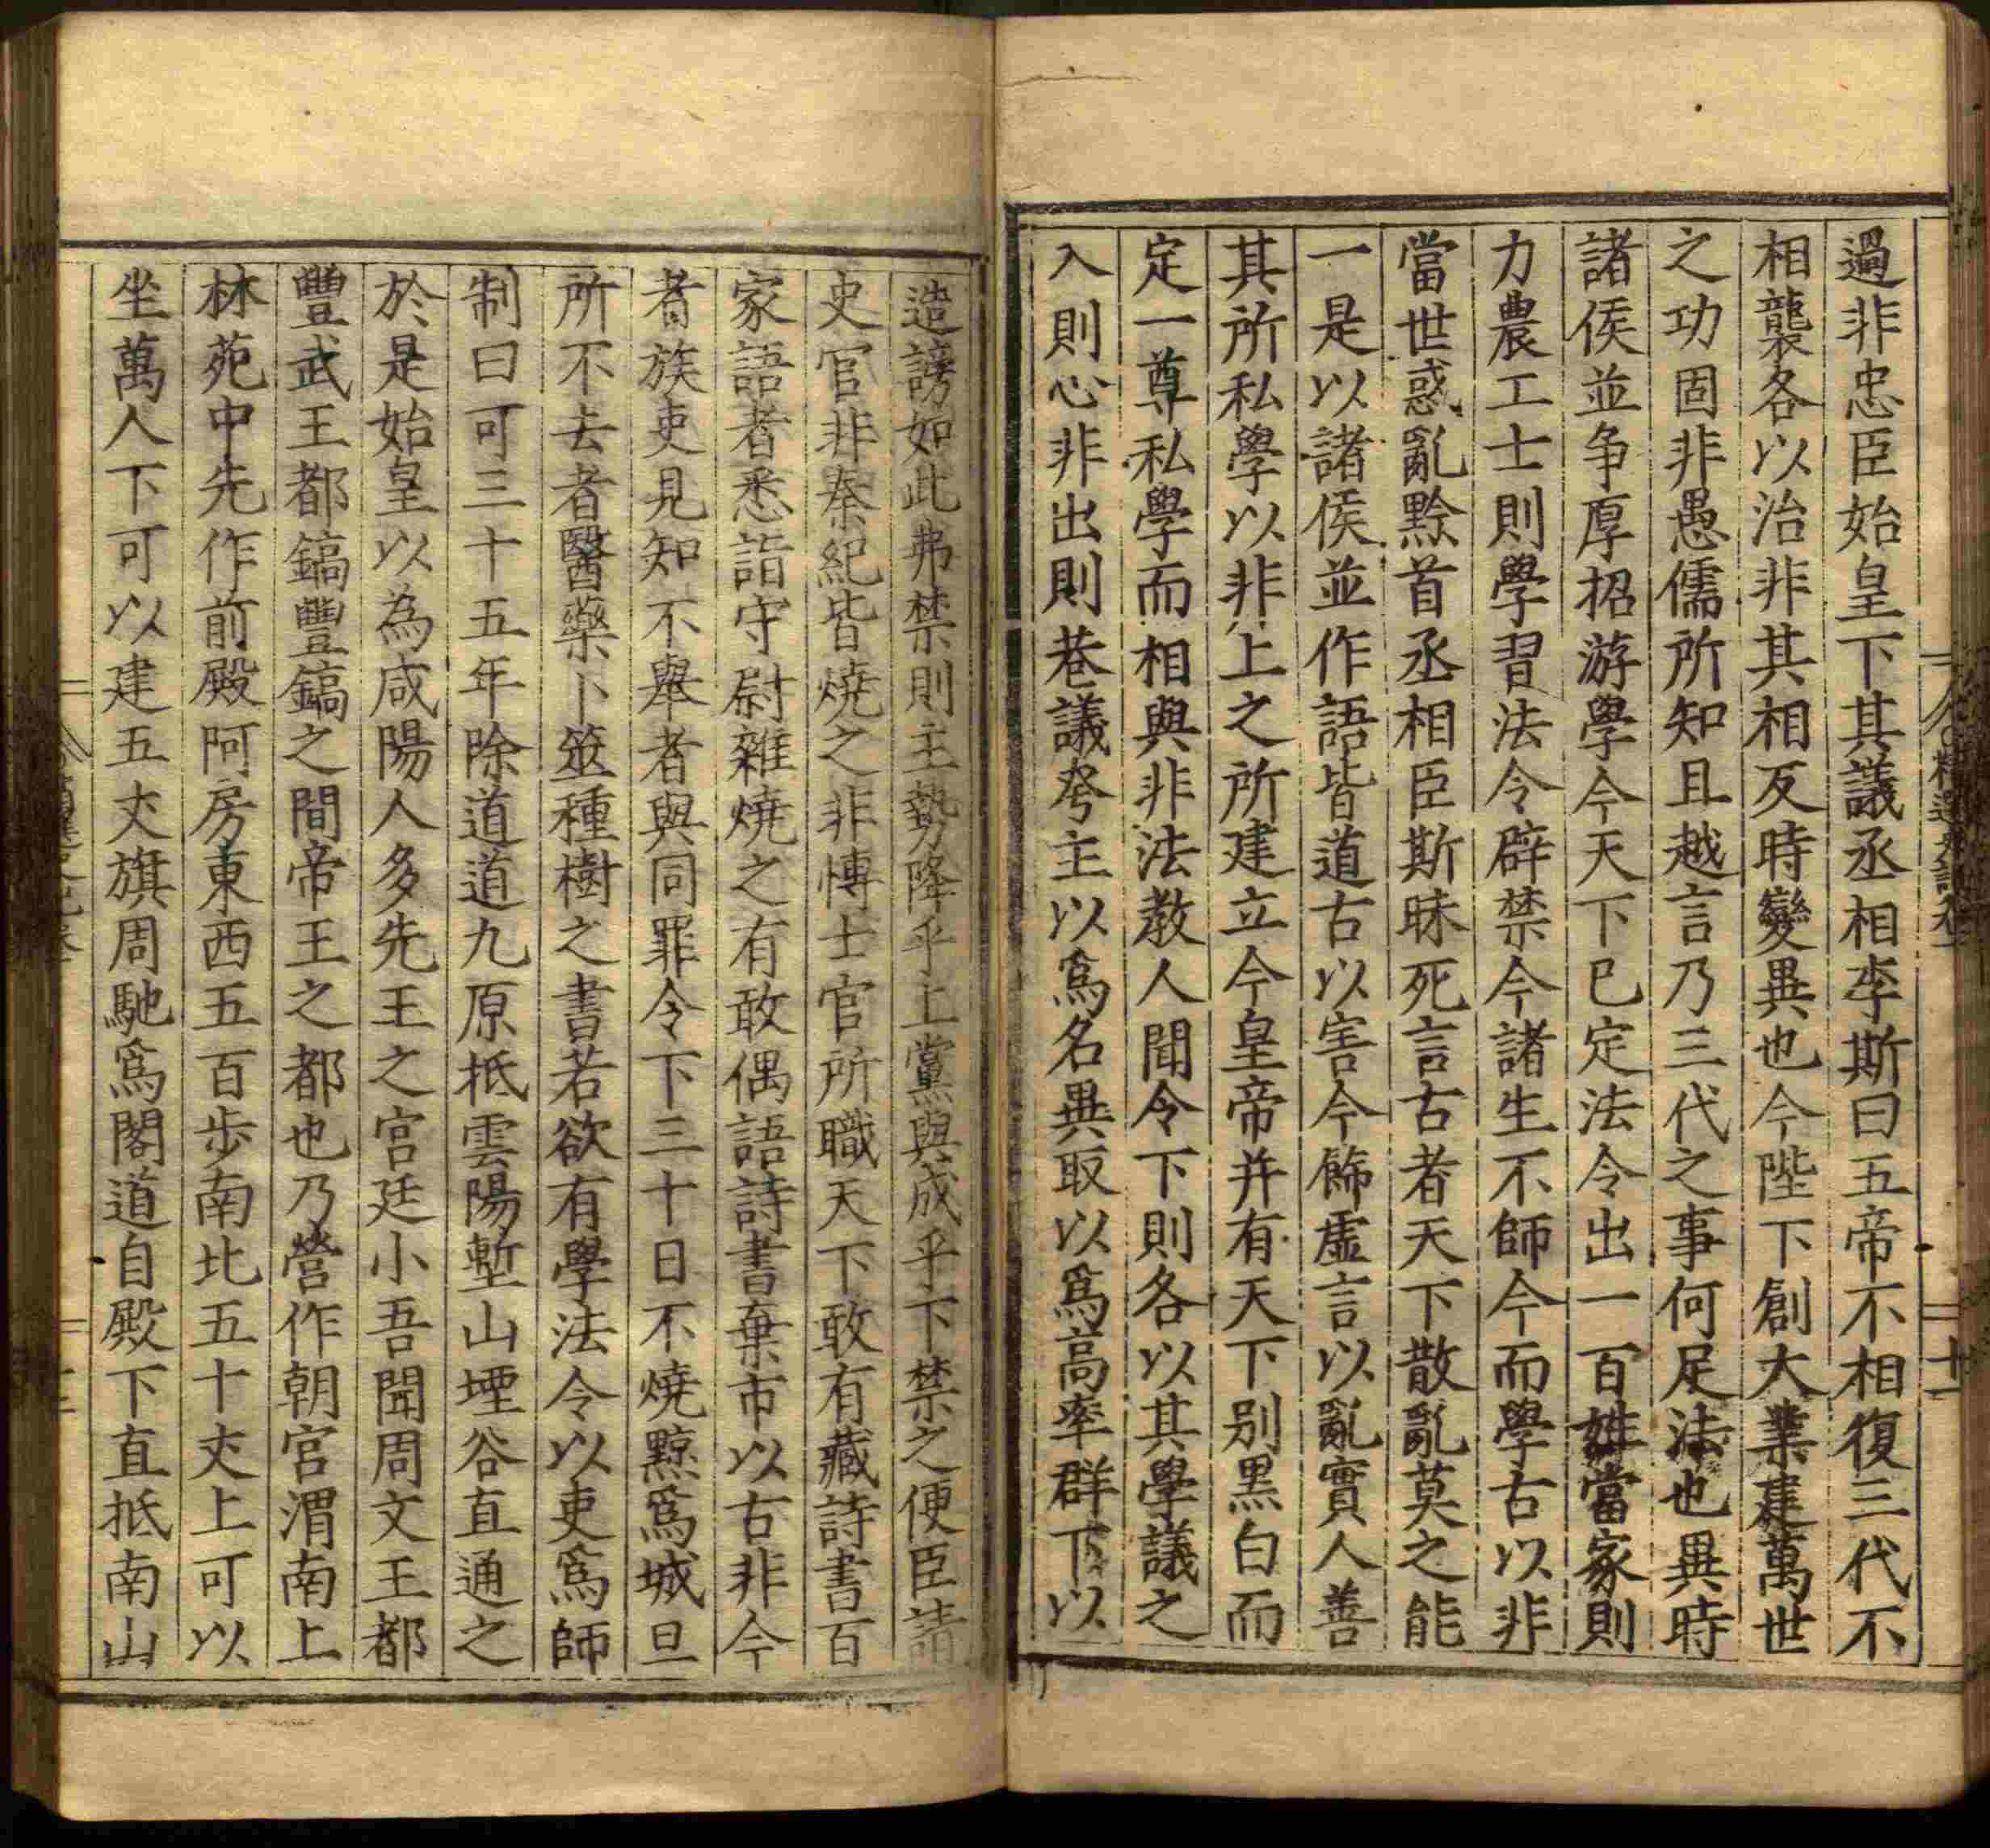 過非忠臣始皇下其議丞相李斯曰五帝不相復三代不
相襲各以治非其相反時變異也今陛下創大業建萬世
之功固非愚儒所知且越言乃三代之事何足法也異時
諸侯並争厚招游學今天下已定法令出一百姓當家則
力農工士則學習法令辟禁今諸生不師今而學古以非
當世惑亂黔首丞相臣斯昧死言古者天下散亂莫之能
一是以諸侯並作語皆道古以害今飾虛言以亂實人善
其所私學以非上之所建立今皇帝并有天下别黑白而
定一尊私學而相與非法教人聞令下則各以其學議之
入則心非出則巷議夸主以爲名異取以爲高率群下以
造謗如此弗禁則主勢降乎上黨與成乎下禁之便臣請
史官非秦紀皆燒之非博士官所職天下敢有藏詩書百
家語者悉詣守尉雜燒之有敢偶語詩書棄市以古非今
者族吏見知不舉者與同罪令下三十日不燒黥爲城旦
所不去者醫藥卜筮種樹之書若欲有學法令以吏爲師
制曰可三十五年除道道九原抵雲陽塹山堙谷直通之
於是始皇以為咸陽人多先王之宮廷小吾聞周文王都
豐武王都鎬豐鎬之間帝王之都也乃營作朝宮渭南上
林苑中先作前殿阿房東西五百步南北五十丈上可以
坐萬人下可以建五丈旗周馳爲閣道自殿下直抵南山